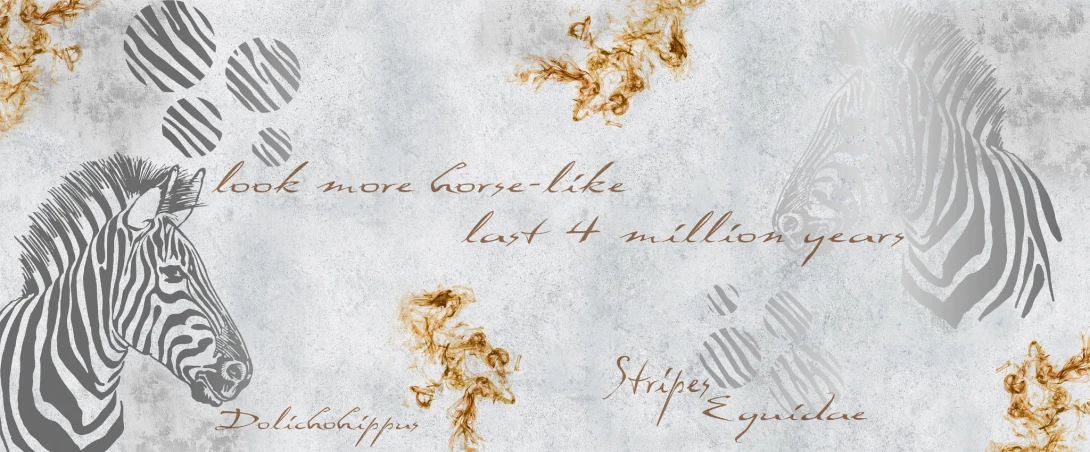 look more horse-like
last 4 million years
Stripes
Equidae
Dolichohippus